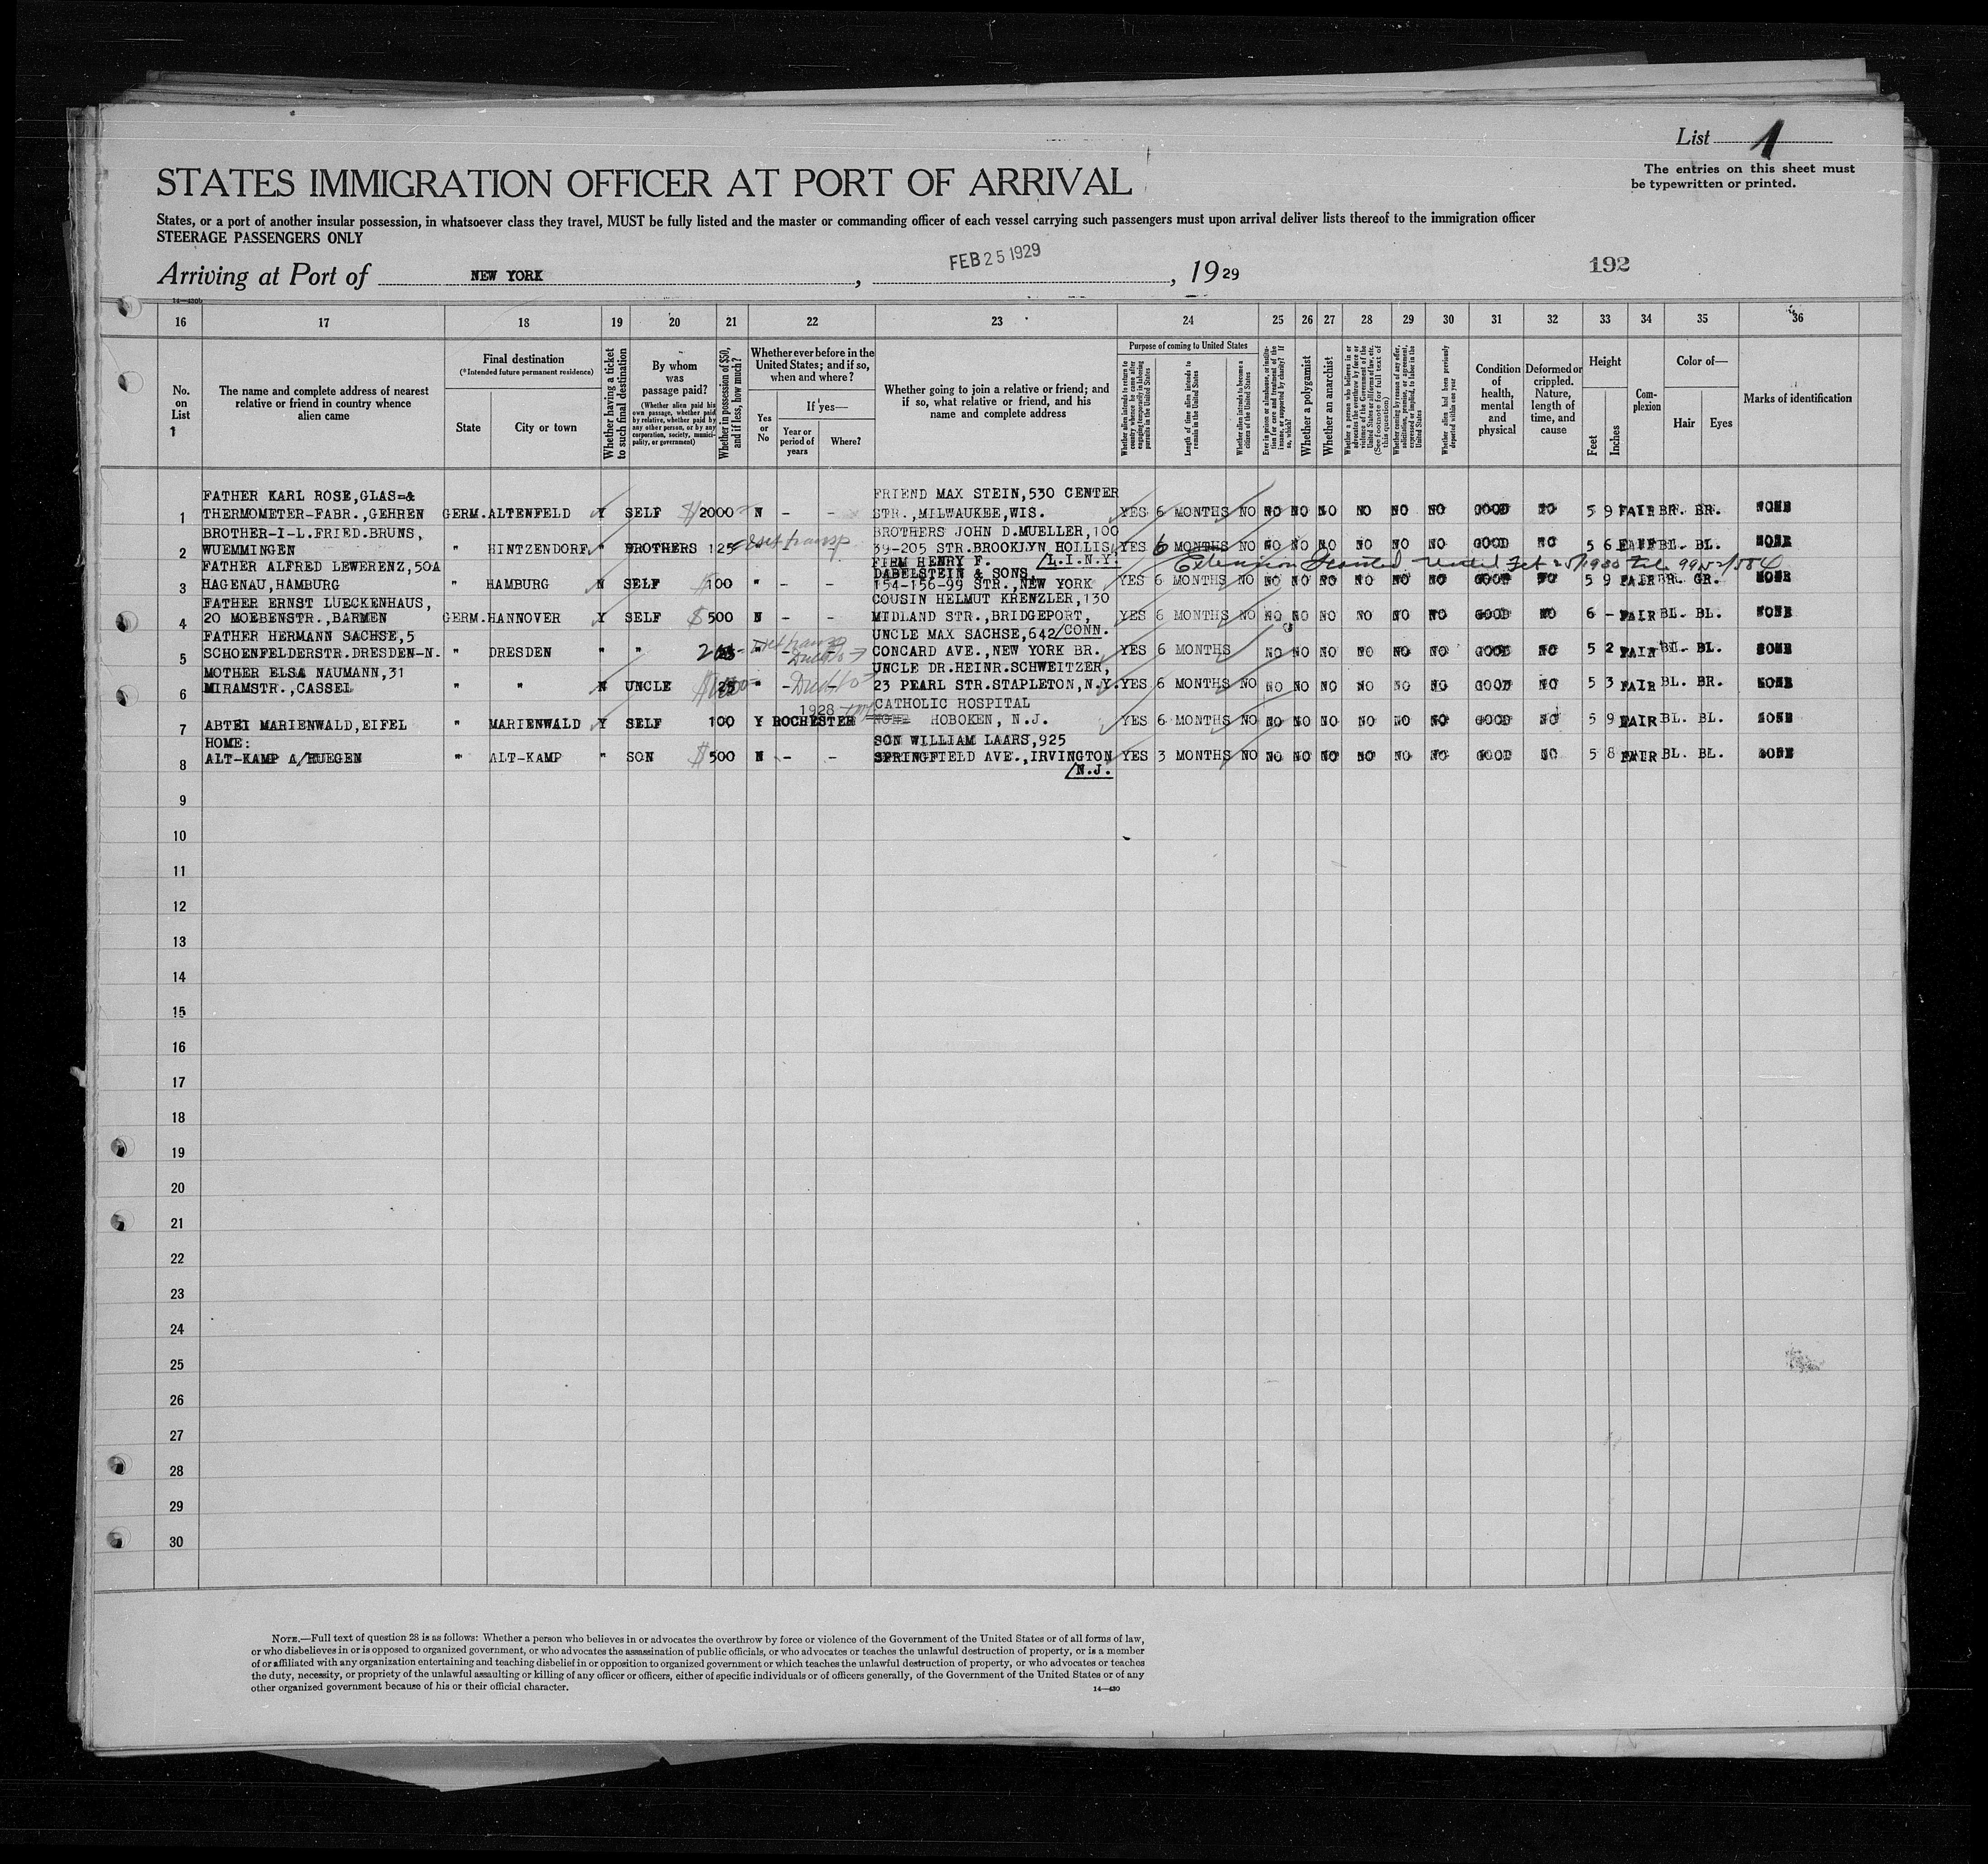 List 1
The entries on this sheet must
be typewritten or printed.
STATES IMMIGRATION OFFICER AT PORT OF ARRIVAL
States, or a port of another insular possession, in whatsoever class they travel, MUST be fully listed and the master or commanding officer of each vessel carrying such passengers must upon arrival deliver lists thereof to the immigration officer
STEERAGE PASSENGERS ONLY
Arriving at Port of NEW YORK, FEB 25 1929, 1929
192
14—430b
16 17 18 19 20 21 22 23 24 25 26 27 28 29 30 31 32 33 34 35 36
No.
on
List
1
The name and complete address of nearest
relative or friend in country whence
alien came
Final destination
(*Intended future permanent residence)
State
City or town
Whether having a ticket
to such final destination
By whom
was
passage paid?
(Whether alien paid his
own passage, whether paid
by relative, whether paid by
any other person, or by any
corporation, society, munici-
pality, or government)
Whether in possession of $50,
and if less, how much?
Whether ever before in the
United States; and if so,
when and where?
Yes
or
No
If yes—
Year or
period of
years
Where?
Whether going to join a relative or friend; and
if so, what relative or friend, and his
name and complete address
Purpose of coming to United States
Whether alien intends to return to
country whence he came after
engaging temporarily in laboring
pursuits in the United States
Length of time alien intends to
remain in the United States
Whether alien intends to become a
citizen of the United States
Ever in prison or almshouse, or institu-
tion for care and treatment of the
insane, or supported by charity? If
so, which?
Whether a polygamist
Whether an anarchist
Whether a person who believes in or
advocates the overthrow by force or
violence of the Government of the
United States or all forms of law, etc.
(See footnote for full text of
this question)
Whether coming by reason of any offer,
solicitation, promise, or agreement,
expressed or implied, to labor in the
United States
Whether alien had been previously
deported within one year
Condition
of
health,
mental
and
physical
Deformed or
crippled.
Nature,
length of
time, and
cause
Height
Feet
Inches
Com-
plexion
Color of—
Hair
Eyes
Marks of identification
FATHER KARL ROSE,GLAS=& FRIEND MAX STEIN,530 CENTER
1 THERMOMETER-FABR.,GEHREN GERM. ALTENFELD Y SELF $ 2000 N - - STR.,MILWAUKEE,WIS. YES 6 MONTHS NO NO NO NO NO NO NO GOOD NO 5 9 FAIR BR. BR. NONE
BROTHER-I-L.FRIED.BRUNS, BROTHERS JOHN D.MUELLER,100
2 WUEMMINGEN " HINTZENDORF " BROTHERS 125 39-205 STR.BROOKLYN HOLLIS, YES 6 MONTHS NO NO NO NO NO NO NO GOOD NO 5 6 FAIR BL. BL. NONE
FATHER ALFRED LEWERENZ,50A FIRM HENRY F. /L.I.N.Y. Extension Granted until Feb 25/1930
DABELSTEIN & SONS,
3 HAGENAU,HAMBURG " HAMBURG N SELF $ 100 " - - 154-156-99 STR.,NEW YORK YES 6 MONTHS NO NO NO NO NO NO NO GOOD NO 5 9 FAIR BR. GR. NONE
FATHER ERNST LUECKENHAUS, COUSIN HELMUT KRENZLER,130
4 20 MOEBENSTR.,BARMEN GERM. HANNOVER Y SELF $ 500 N - - MIDLAND STR.,BRIDGEPORT, YES 6 MONTHS NO NO NO NO NO NO NO GOOD NO 6 - FAIR BL. BL. NONE
FATHER HERMANN SACHSE,5 UNCLE MAX SACHSE,642 /CONN.
5 SCHOENFELDERSTR.DRESDEN-N. " DRESDEN " " " - - CONCARD AVE.,NEW YORK BR. YES 6 MONTHS NO NO NO NO NO NO GOOD NO 5 2 FAIR BL. BL. NONE
MOTHER ELSA NAUMANN,31 UNCLE DR.HEINR.SCHWEITZER,
6 MIRAMSTR.,CASSEL " " N UNCLE 25 " - - 23 PEARL STR.STAPLETON,N.Y. YES 6 MONTHS NO NO NO NO NO NO NO GOOD NO 5 3 FAIR BL. BR. NONE
1928 CATHOLIC HOSPITAL
7 ABTEI MARIENWALD,EIFEL " MARIENWALD Y SELF 100 Y ROCHESTER HOBOKEN, N.J. YES 6 MONTHS NO NO NO NO NO NO NO GOOD NO 5 9 FAIR BL. BL. NONE
HOME: SON WILLIAM LAARS,925
8 ALT-KAMP A/RUEGEN " ALT-KAMP " SON $ 500 N - - SPRINGFIELD AVE.,IRVINGTON YES 3 MONTHS NO NO NO NO NO NO NO GOOD NO 5 8 FAIR BL. BL. NONE
/N.J.
9
10
11
12
13
14
15
16
17
18
19
20
21
22
23
24
25
26
27
28
29
30
NOTE.—Full text of question 28 is as follows: Whether a person who believes in or advocates the overthrow by force or violence of the Government of the United States or of all forms of law,
or who disbelieves in or is opposed to organized government, or who advocates the assassination of public officials, or who advocates or teaches the unlawful destruction of property, or is a member
of or affiliated with any organization entertaining and teaching disbelief in or opposition to organized government or which teaches the unlawful destruction of property, or who advocates or teaches
the duty, necessity, or propriety of the unlawful assaulting or killing of any officer or officers, either of specific individuals or of officers generally, of the Government of the United States or of any
other organized government because of his or their official character.
14—430